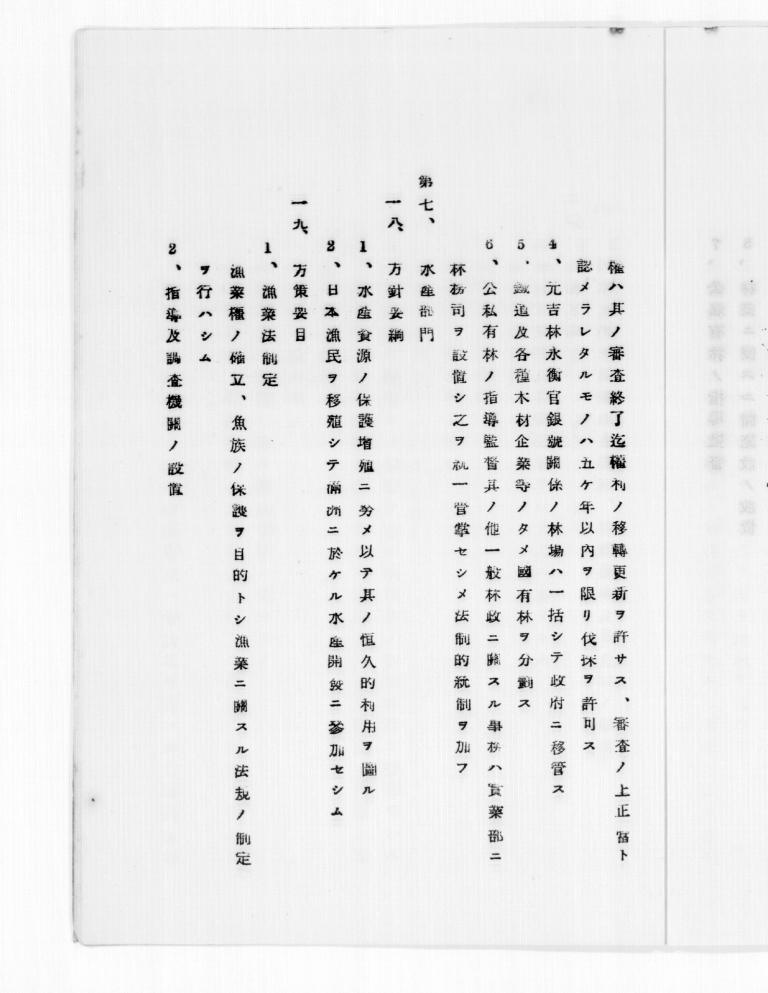 權ハ其ノ審査終了迄權利ノ移轉更新ヲ許サス、審査ノ上正當ト
認メラレタルモノハ五ケ年以內ヲ限リ伐採ヲ許可ス
4、元吉林永衡官銀號關係ノ林場ハ一括シテ政府ニ移管ス
5．鐵道及各種木材企業等ノタメ國有林ヲ分劃ス
6、公私有林ノ指導監督其ノ他一般林政ニ關スル事務ハ實業部ニ
林務司ヲ設置シ之ヲ統一管掌セシメ法制的統制ヲ加フ
第七、水產部門
一八、方針要綱
1、水產資源ノ保護增殖ニ努メ以テ其ノ恒久的利用ヲ圖ル
2、日本漁民ヲ移殖シテ滿洲ニ於ケル水產開發ニ參加セシム
一九、方策要目
1、漁業法制定
漁業權ノ確立、魚族ノ保護ヲ目的トシ漁業ニ關スル法規ノ制定
ヲ行ハシム
2、指導及調査機關ノ設置